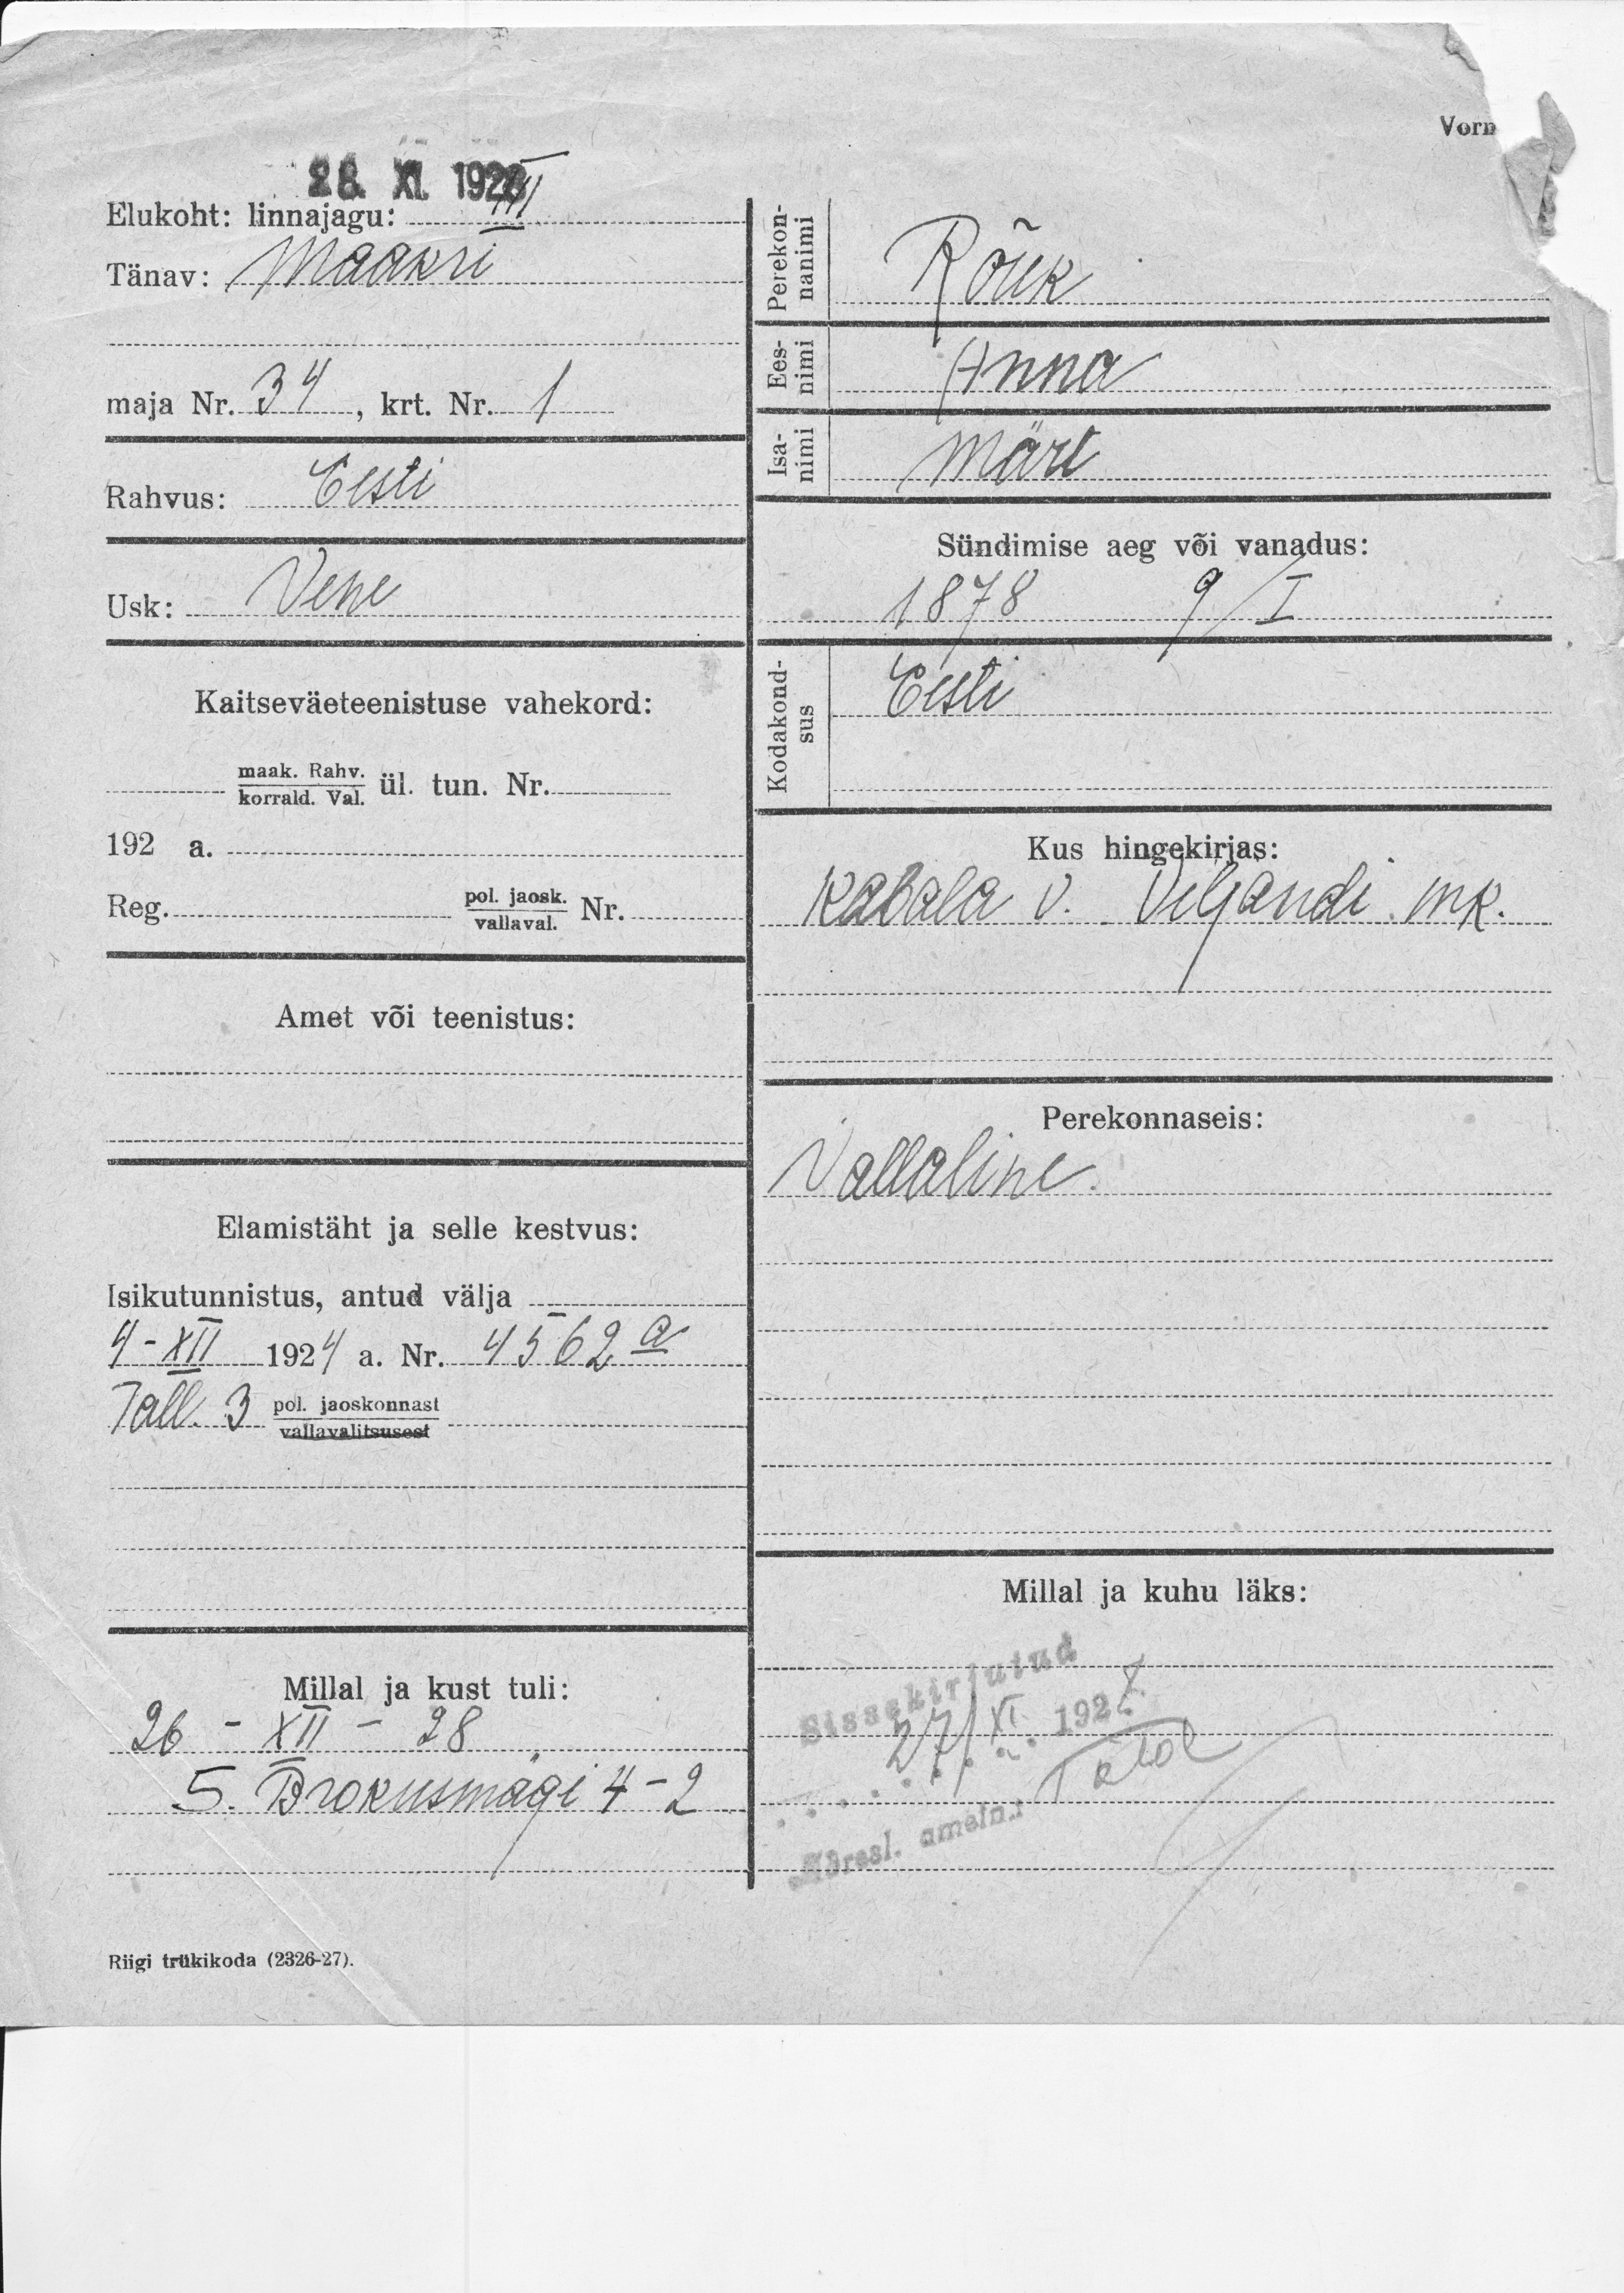 Vorm
28. XI. 1928
Elukoht: linnajagu: III
Tänav: Maakri
maja Nr. 34, krt. Nr. 1
Rahvus: Eesti
Usk: Vene
Kaitseväeteenistuse vahekord:
maak. Rahv.
korrald. Val. ül. tun. Nr.
192 a.
Reg. pol. jaosk.
vallaval. Nr.
Amet või teenistus:
Elamistäht ja selle kestvus:
Isikutunnistus, antud välja
4-XII 1924 a. Nr. 4562 a
Tall. 3 pol. jaoskonnast
vallavalitsusest
Millal ja kust tuli:
26 - XII - 28
S. Brokusmägi 4-2
Riigi trükikoda (2326-27).
Perekon-
nanimi
Rõuk
Ees-
nimi
Anna
Isa-
nimi
Märt
Sündimise aeg või vanadus:
1878 9/I
Kodakond-
sus
Eesti
Kus hingekirjas:
Kabala v. Viljandi mk.
Perekonnaseis:
Vallaline.
Millal ja kuhu läks:
Sissekirjutud
27/XI 1928
Adresl. ametn.: